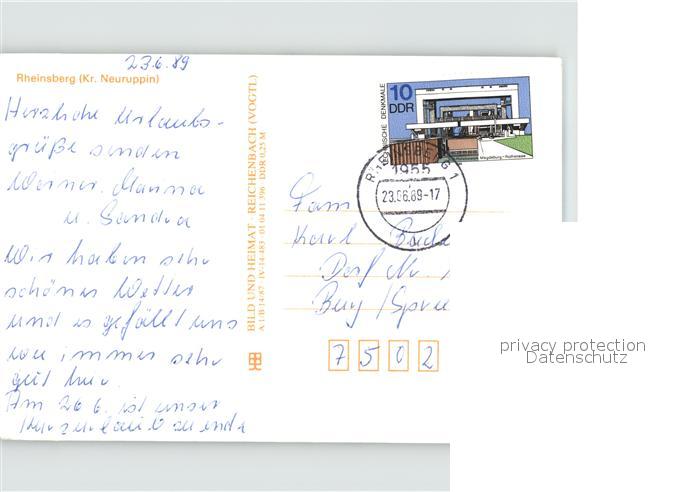 23.6.89
Rheinsberg (Kr. Neuruppin)
Herzliche Urlaubs-
grüße senden
Werner, Marina
u. Sandra
Wir haben sehr
schönes Wetter
und es gefällt uns
wie immer sehr
gut hier.
Am 26.6. ist unser
Kurzurlaub zu ende
BILD UND HEIMAT · REICHENBACH (VOGTL)
A 1/B 14/87 IV-14-483 01 04 11 396 DDR 0,25 M
10
DDR
DENKMALE
Magdeburg-Rothensee
1955
23.06.89-17
Fam
Karl
Dorf Nr.
Burg/Spree
7502
privacy protection
Datenschutz